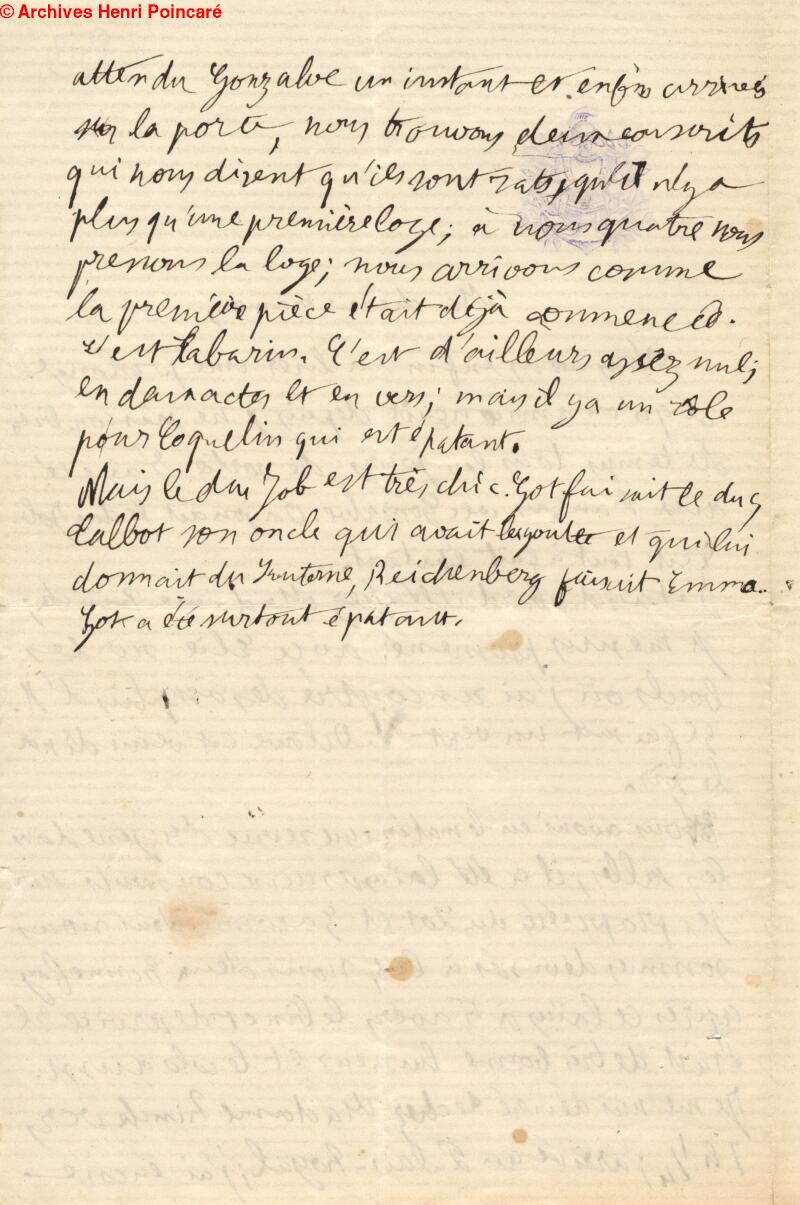 © Archives Henri Poincaré
attendu Gonzalve un instant et enfin arrivés
sur la porte, nous trouvons deux conscrits
qui nous disent qu'ils sont rats, qu'il n'y a
plus qu'une première loge; à nous quatre nous
prenons la loge; nous arrivons comme
la première pièce était déjà commencée.
C'est Tabarin. C'est d'ailleurs assez nul;
en deux actes et en vers; mais il y a un rôle
pour Coquelin qui est épatant.
Mais le duc Job est très chic. Got faisait le duc,
Talbot son oncle qui avait la goutte et qui lui
donnait du Sauterne, Reichenberg faisait Emma.
Got a été surtout épatant.